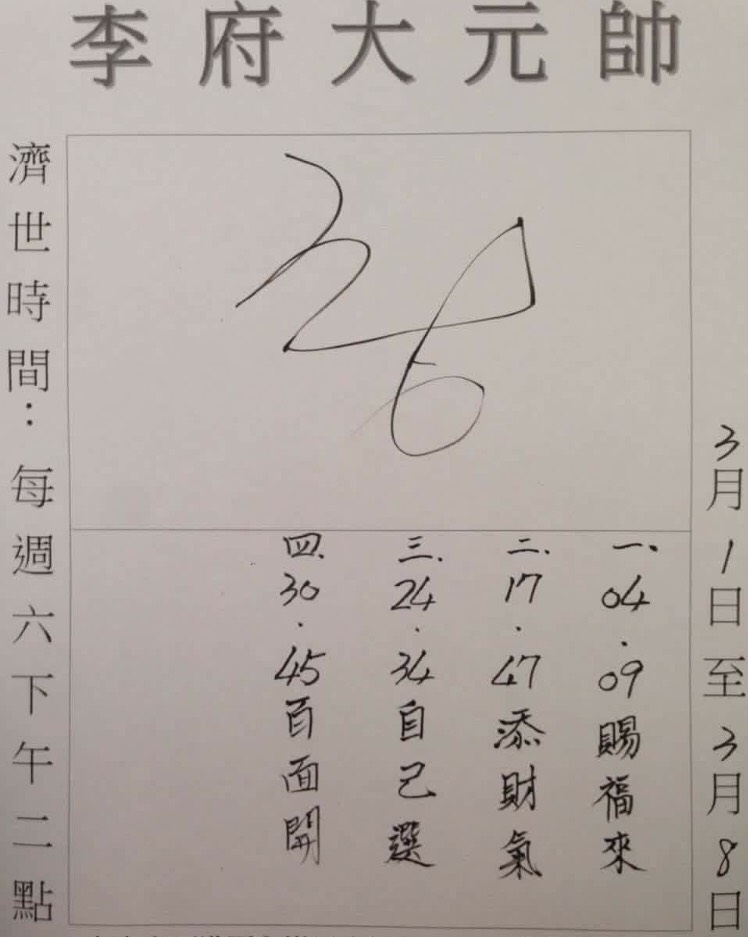 李府大元帥
3月1日至3月8日
一.04.09賜福來
二.17.47添財氣
三.24.34自己選
四.30.45百面開
濟世時間：每週六下午二點